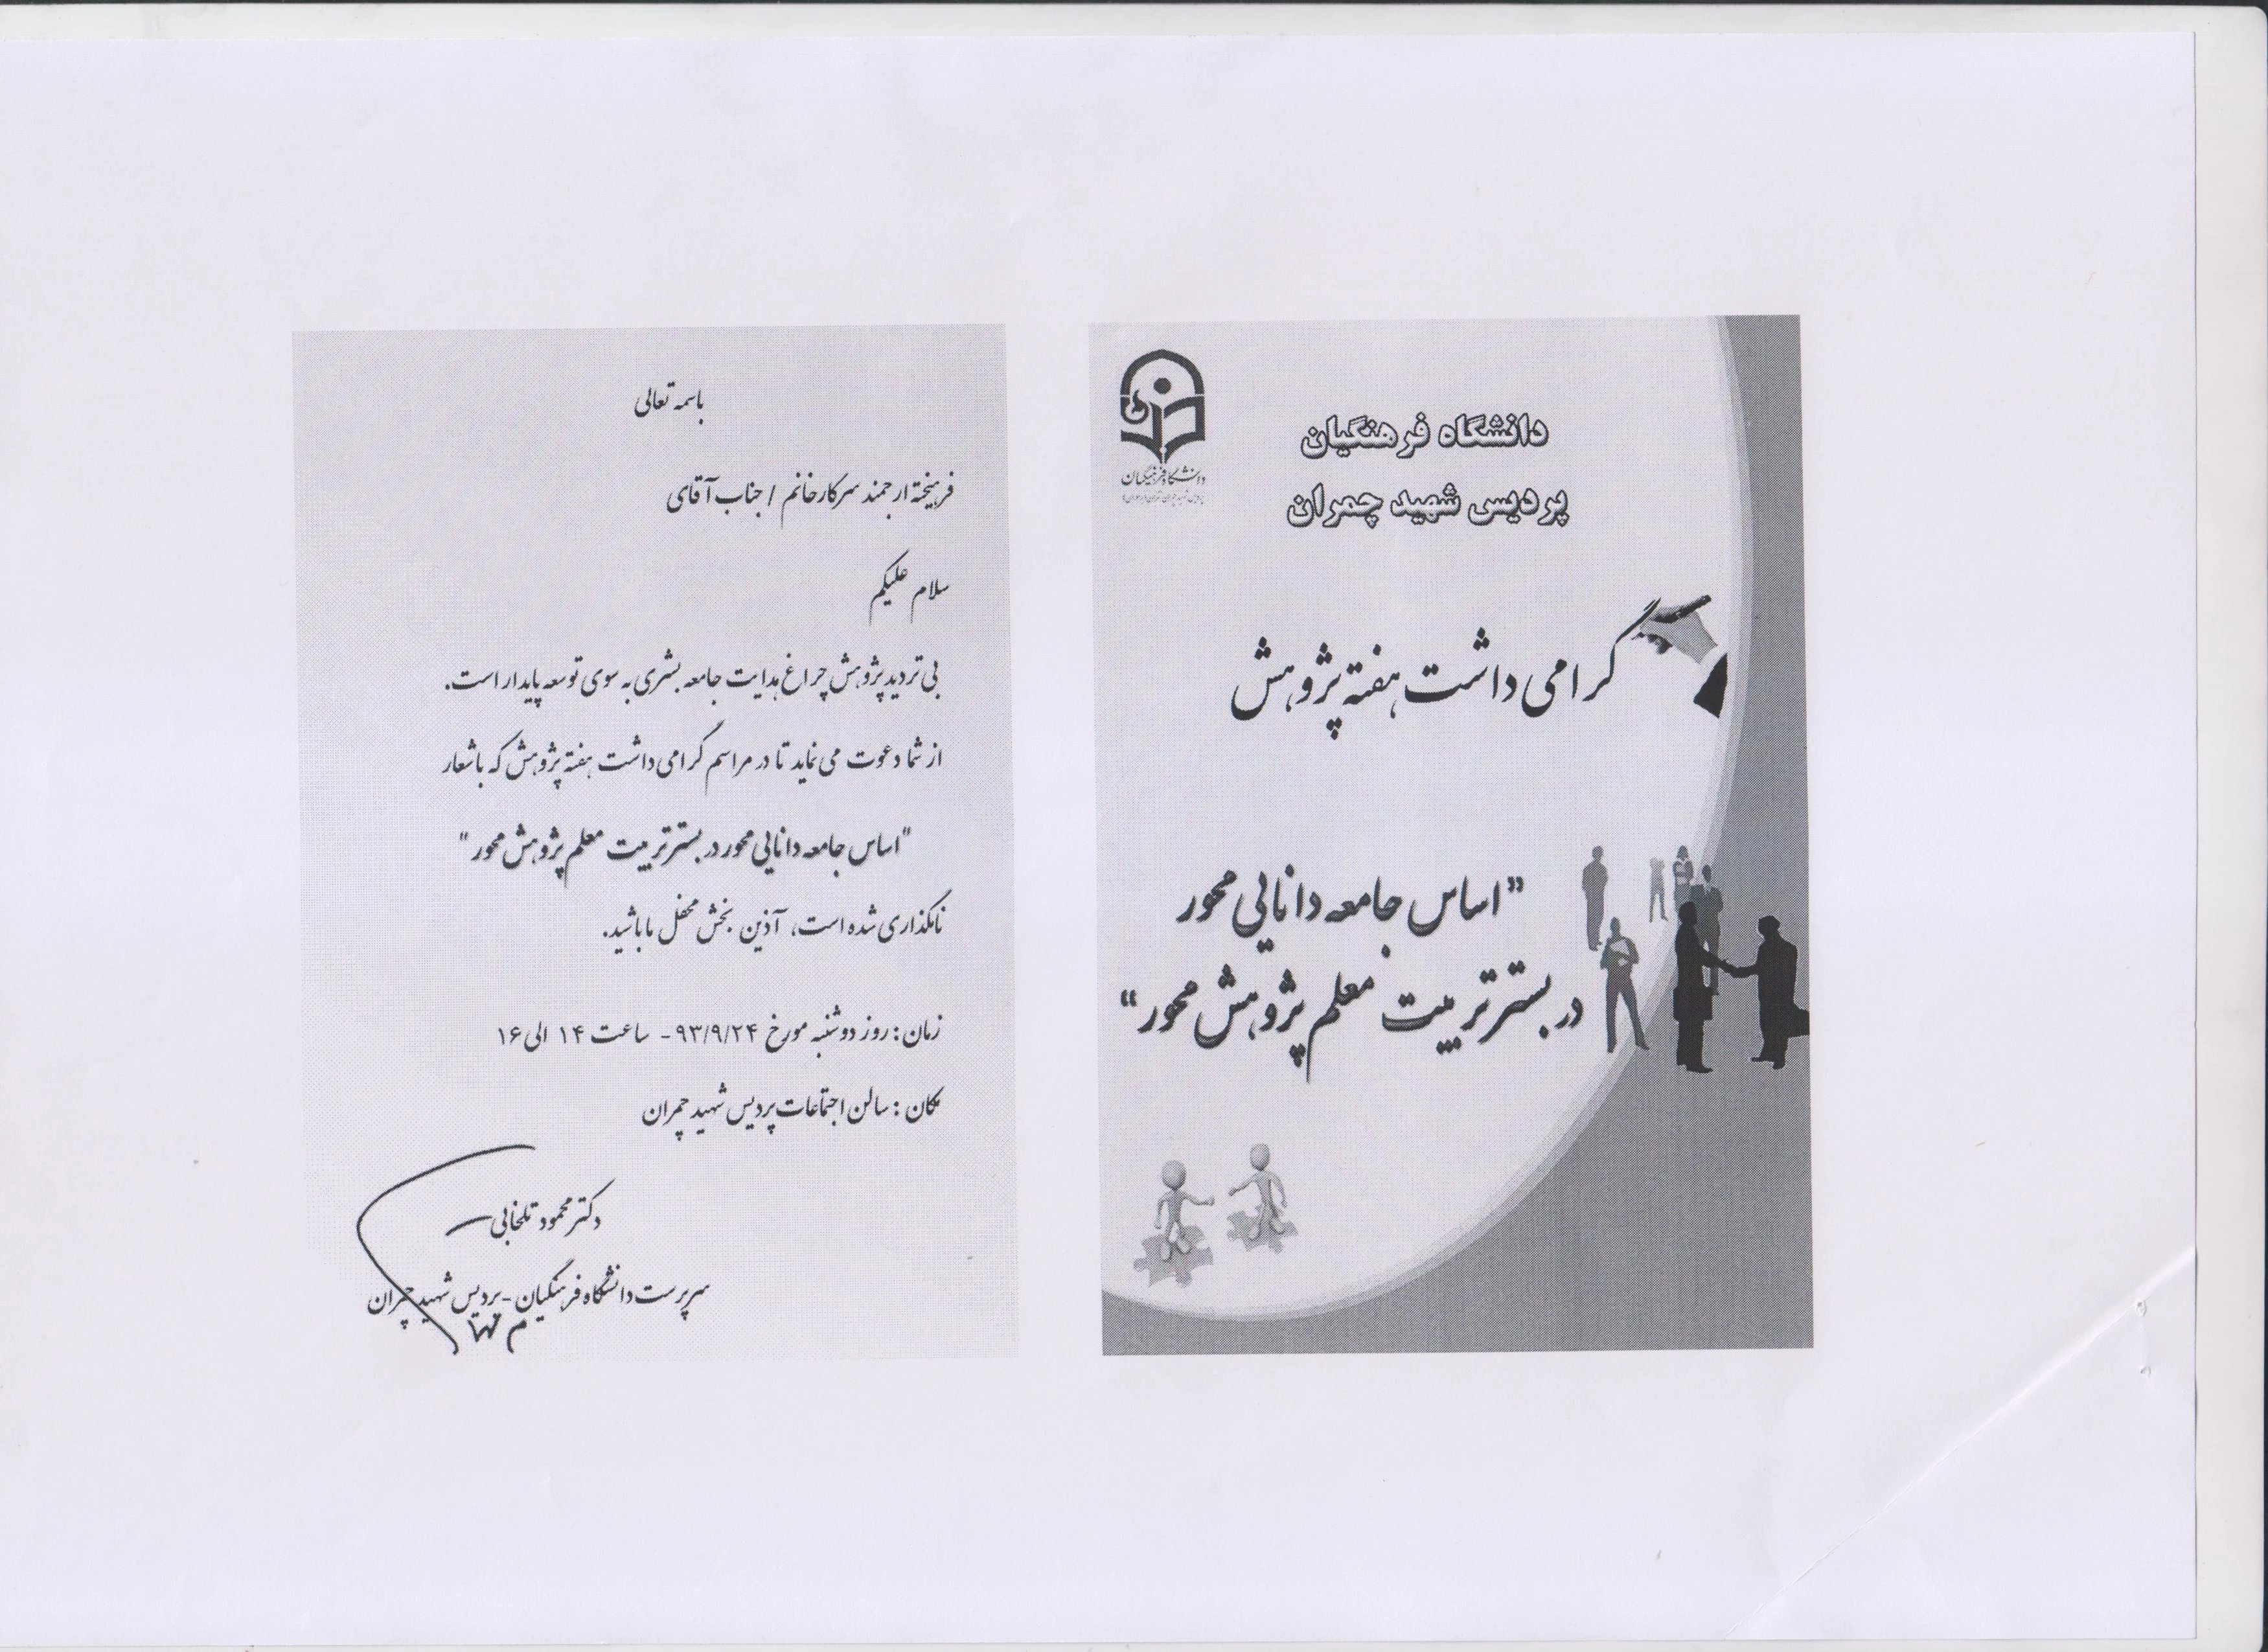 دانشگاه فرهنگیان
پردیس شهید چمران
دانشگاه فرهنگیان
گرامی داشت هفته پژوهش
"اساس جامعه دانایی محور
در بستر تربیت معلم پژوهش محور"
باسمه تعالی
فرهیخته ارجمند سرکار خانم / جناب آقای
سلام علیکم
بی تردید پژوهش چراغ هدایت جامعه بشری به سوی توسعه پایدار است.
از شما دعوت می نماید تا در مراسم گرامی داشت هفته پژوهش که با شعار
"اساس جامعه دانایی محور در بستر تربیت معلم پژوهش محور"
نامگذاری شده است، آذین بخش محفل ما باشید.
زمان: روز دوشنبه مورخ ۹۳/۹/۲۴ - ساعت ۱۴ الی ۱۶
مکان: سالن اجتماعات پردیس شهید چمران
دکتر محمود تلخابی
سرپرست دانشگاه فرهنگیان - پردیس شهید چمران